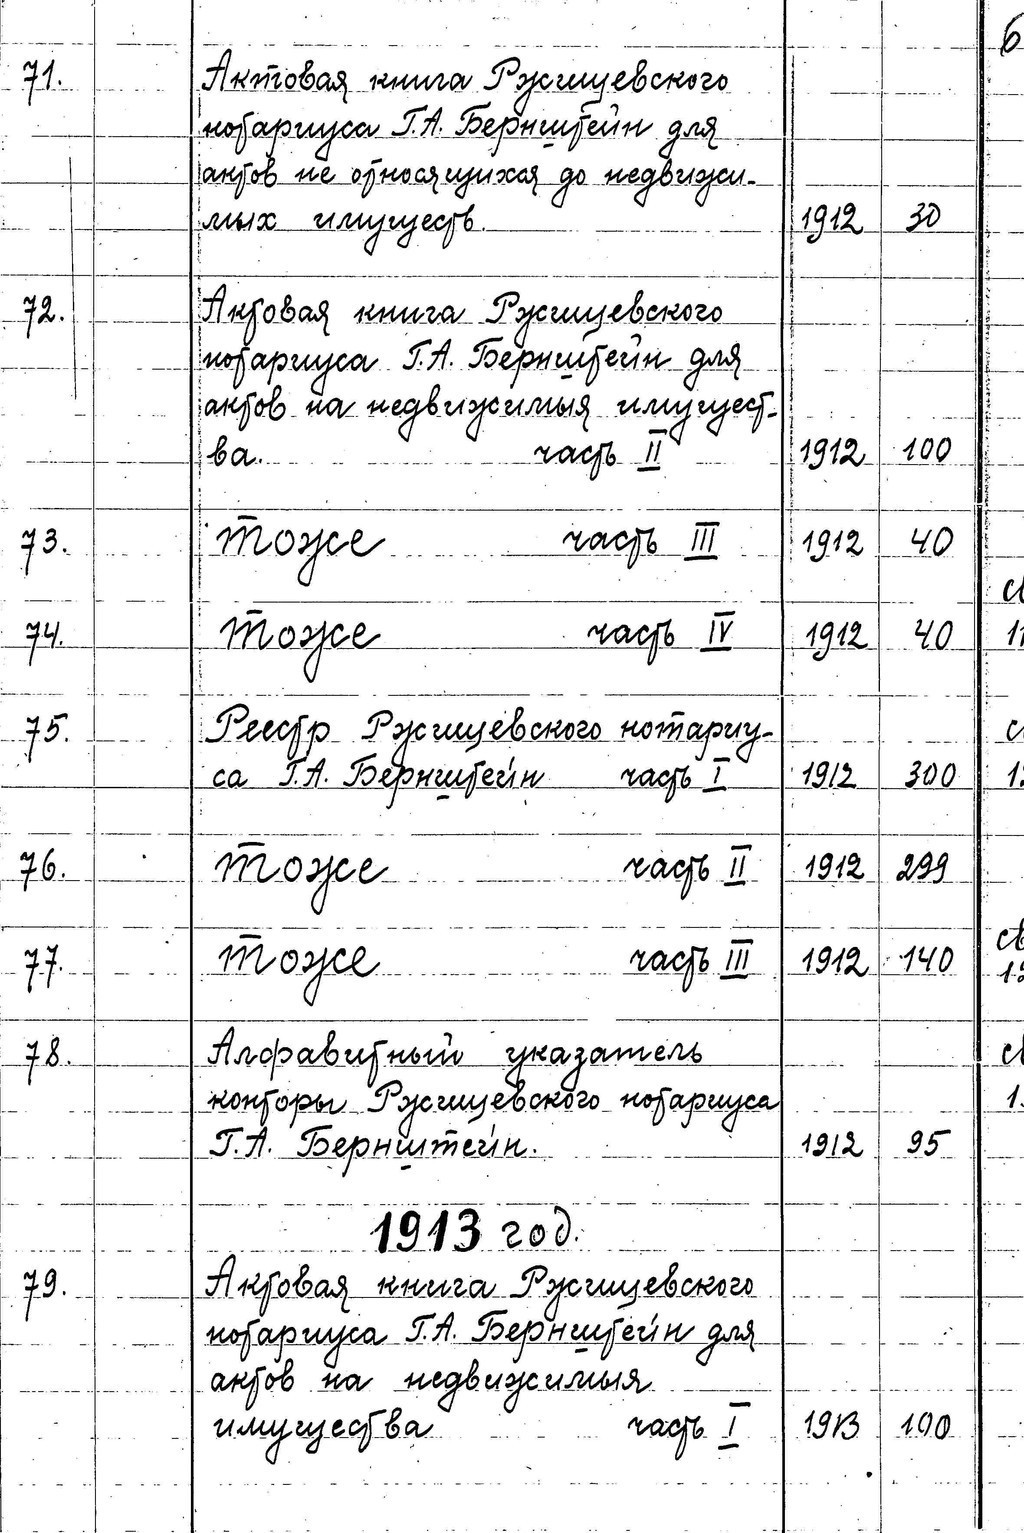 6
71. Актовая книга Ржищевского
нотариуса Г.А. Бернштейн для
актов не относящихся до недвижи-
мых имуществ. 1912 30
72. Актовая книга Ржищевского
нотариуса Г.А. Бернштейн для
актов на недвижимыя имущест-
ва. часть II 1912 100
73. Тоже часть III 1912 40
74. Тоже часть IV 1912 40
75. Реестр Ржищевского нотариу-
са Г.А. Бернштейн часть I 1912 300
76. Тоже часть II 1912 299
77. Тоже часть III 1912 140
78. Алфавитный указатель
конторы Ржищевского нотариуса
Г.А. Бернштейн. 1912 95
1913 год.
79. Актовая книга Ржищевского
нотариуса Г.А. Бернштейн для
актов на недвижимыя
имущества часть I 1913 100